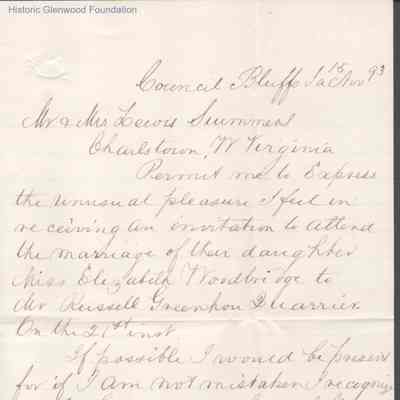 Historic Glenwood Foundation
Council Bluffs Ia 15 Nov 93
Mr & Mrs Lewis Summers
Charlstown, W Virginia
Permit me to Express
the unusual pleasure I feel in
receiving an invitation to attend
the marriage of their daughter
Miss Elizabeth Woodbridge to
Mr Russell Greenhow Quarrier
On the 21st inst
If possible I would be present
for if I am not mistaken I recognize